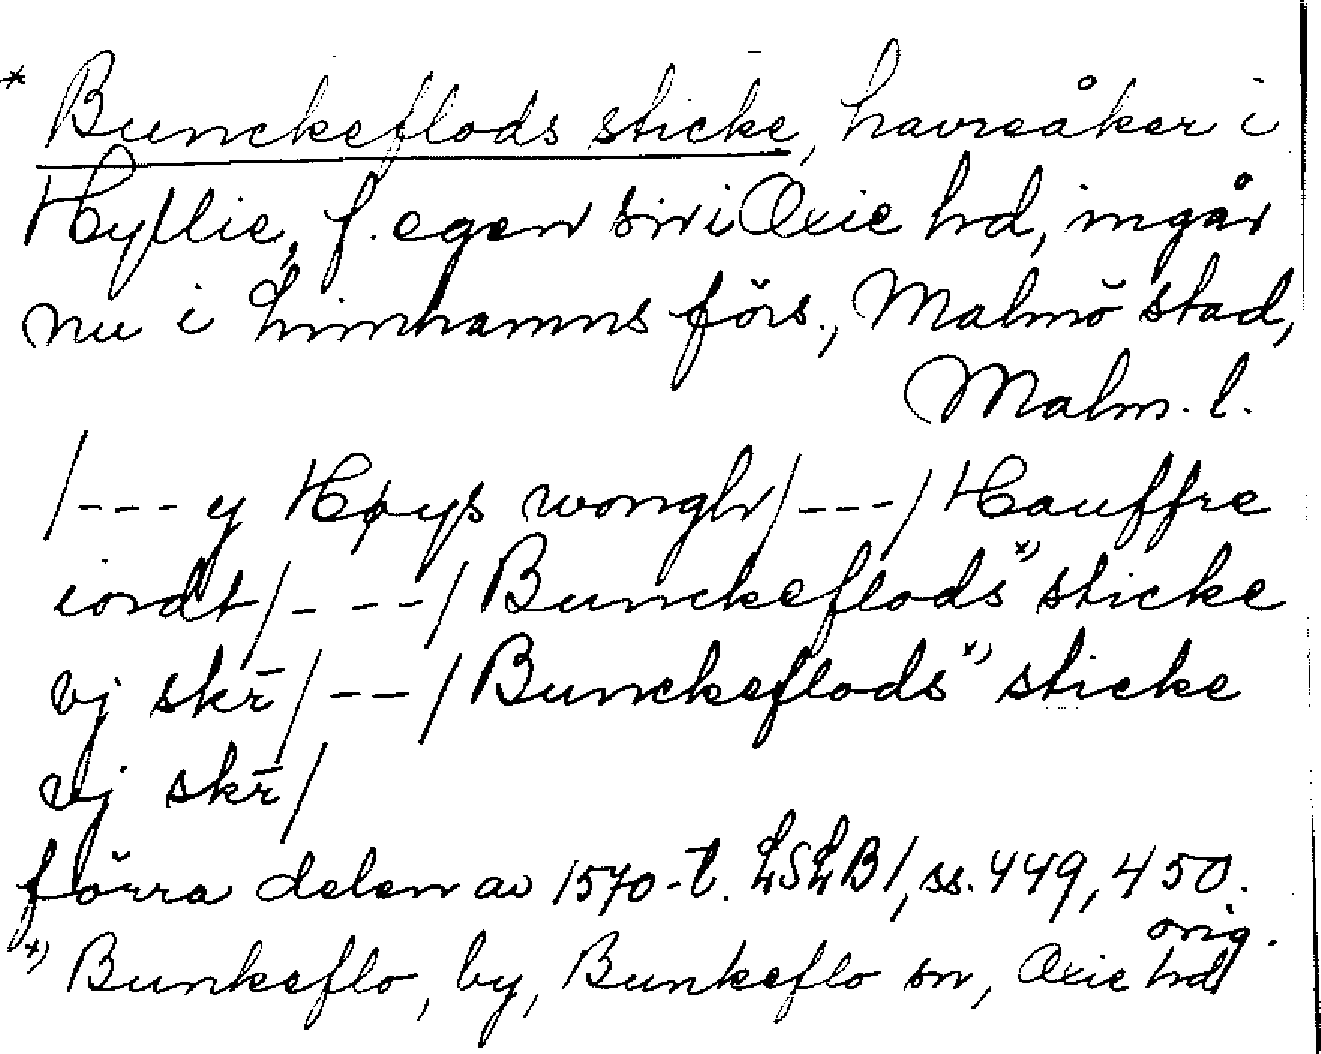 * Bunckeflods sticke, havreåker i
Hyllie, f. egen sn i Oxie hd, ingår
nu i Limhamns förs., Malmö stad,
Malm. l.
/--- y Høys wongh/---/ Hauffre
iordt/---/ Bunckeflods *) sticke
vj skr̄/--/ Bunckeflods *) sticke
vj skr̄/
förra delen av 1570-t. LSLB1, ss. 449, 450.
orig.
*) Bunkeflo, by, Bunkeflo sn, Oxie hd